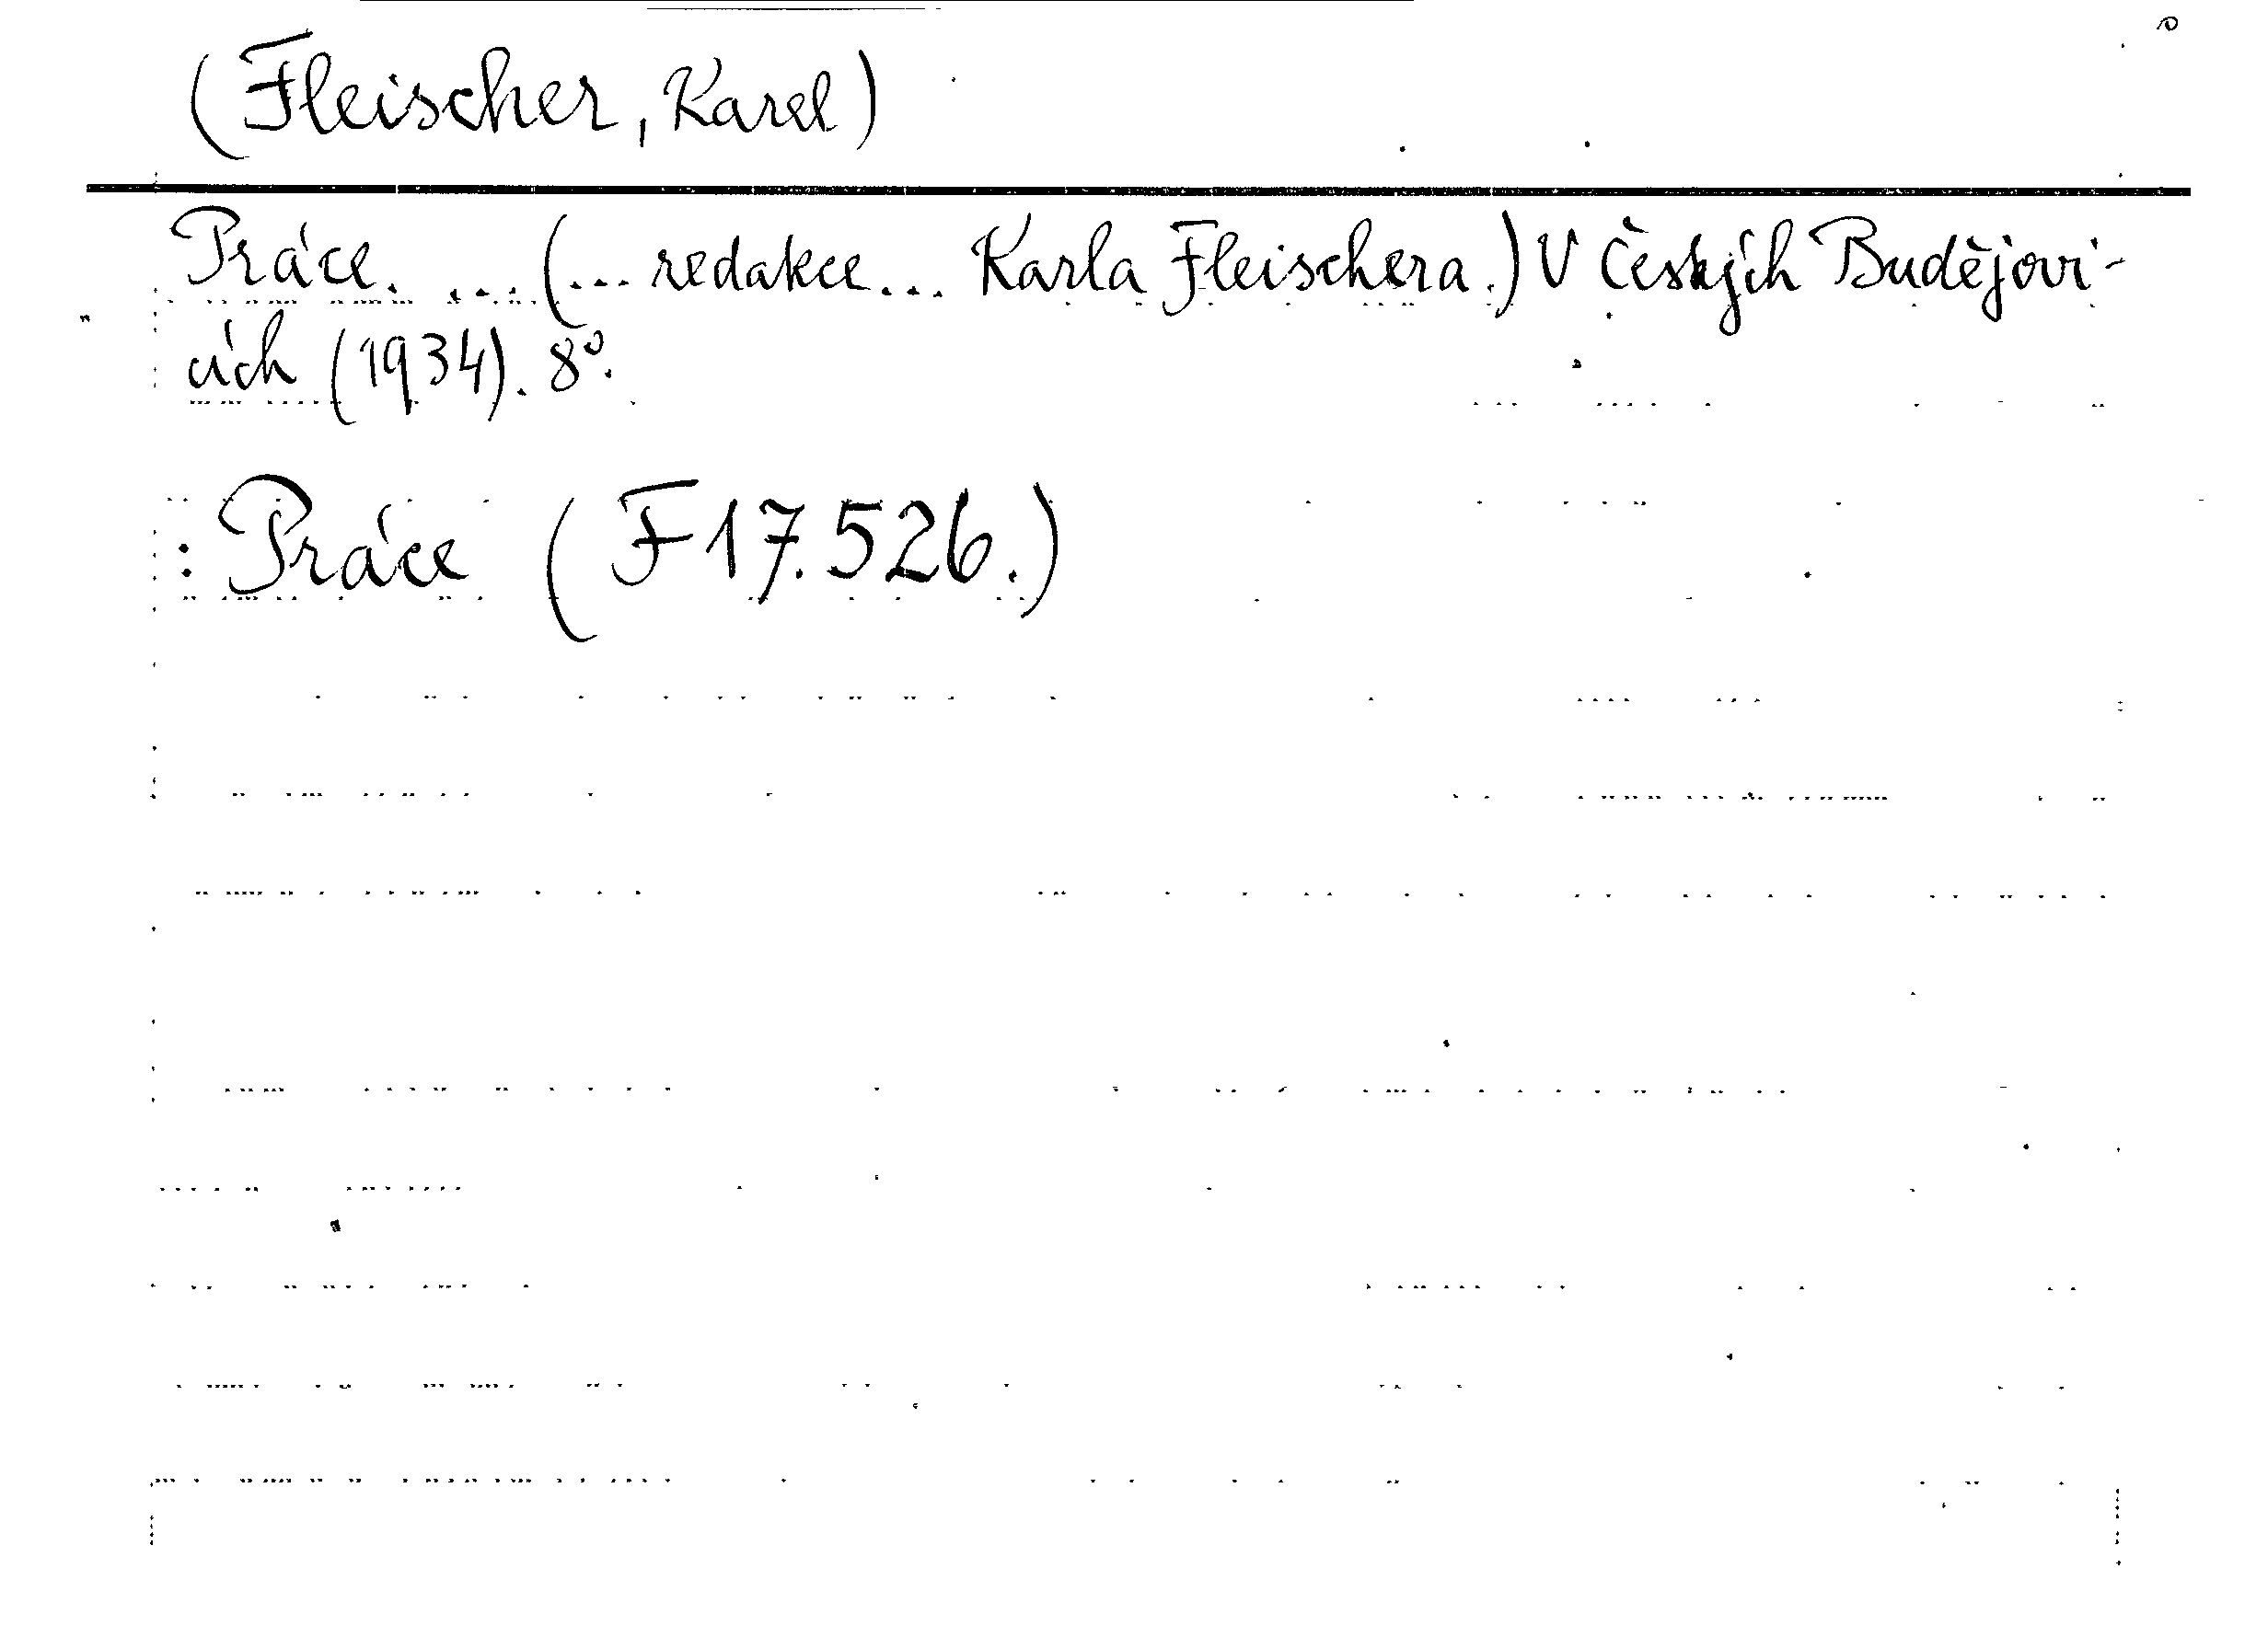 (Fleischer, Karel)
Práce. ... (... redakce... Karla Fleischera.) V Českých Budějovi-
cích (1934). 8°.
: Práce (F17.526.)